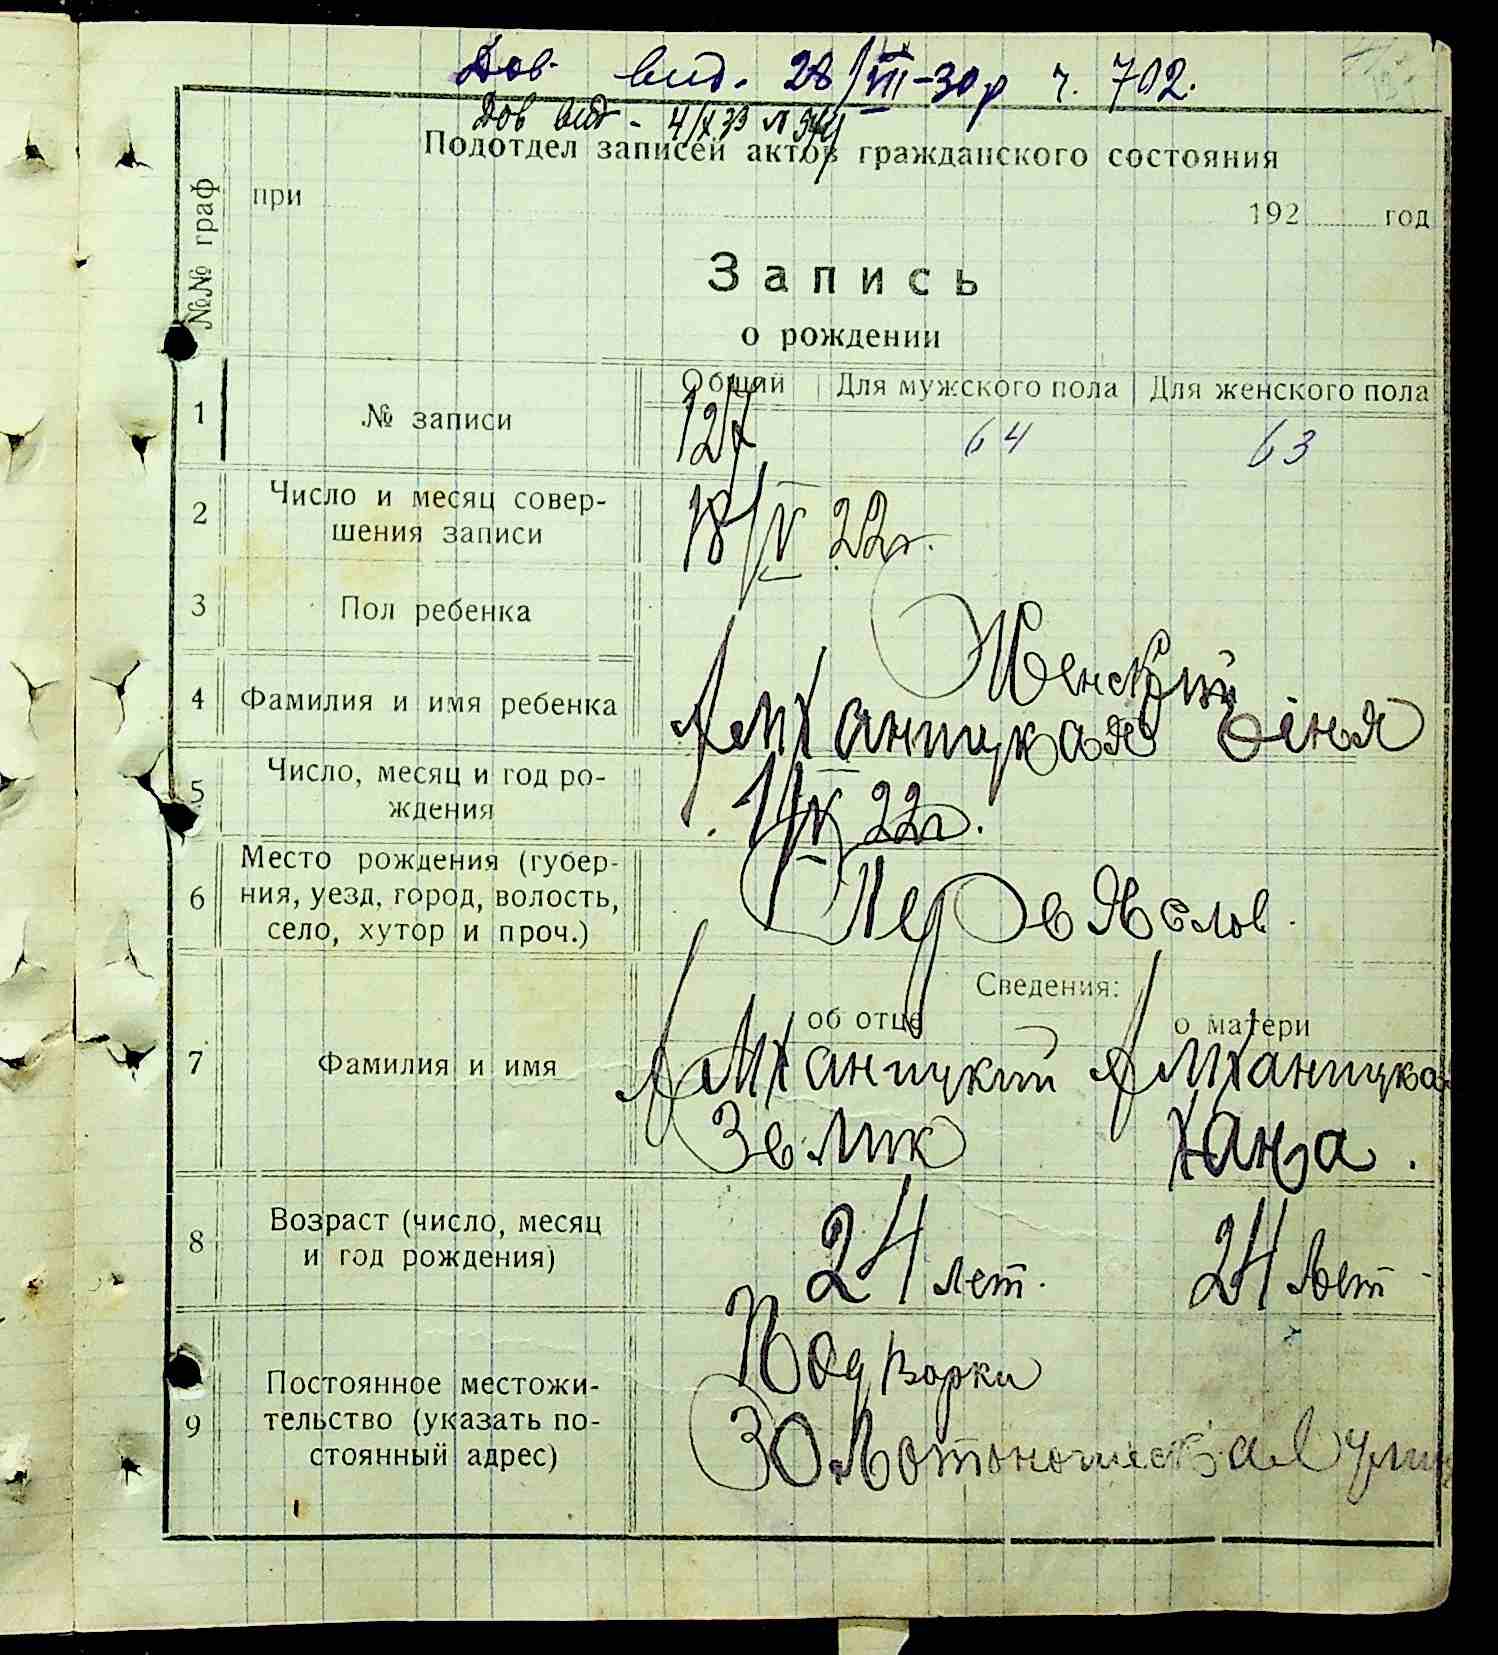 Дов. вид. 28/VIII-30р ч. 702.
Дов вид - 4/X 33 №
Подотдел записей актов гражданского состояния
№№ граф
при 192 год
Запись
о рождении
1 № записи
Общий Для мужского пола Для женского пола
127 64 63
2 Число и месяц совер-
шения записи
18/V 22г.
3 Пол ребенка
Женский
4 Фамилия и имя ребенка
Амханицкая
5 Число, месяц и год ро-
ждения
22г.
6 Место рождения (губер-
ния, уезд, город, волость,
село, хутор и проч.)
Сведения:
об отце о матери
7 Фамилия и имя
Амханицкий Амханицкая
Зелик Хана.
8 Возраст (число, месяц
и год рождения)
24 лет. 24 лет
9 Постоянное местожи-
тельство (указать по-
стоянный адрес)
Подворки
Золотоношская